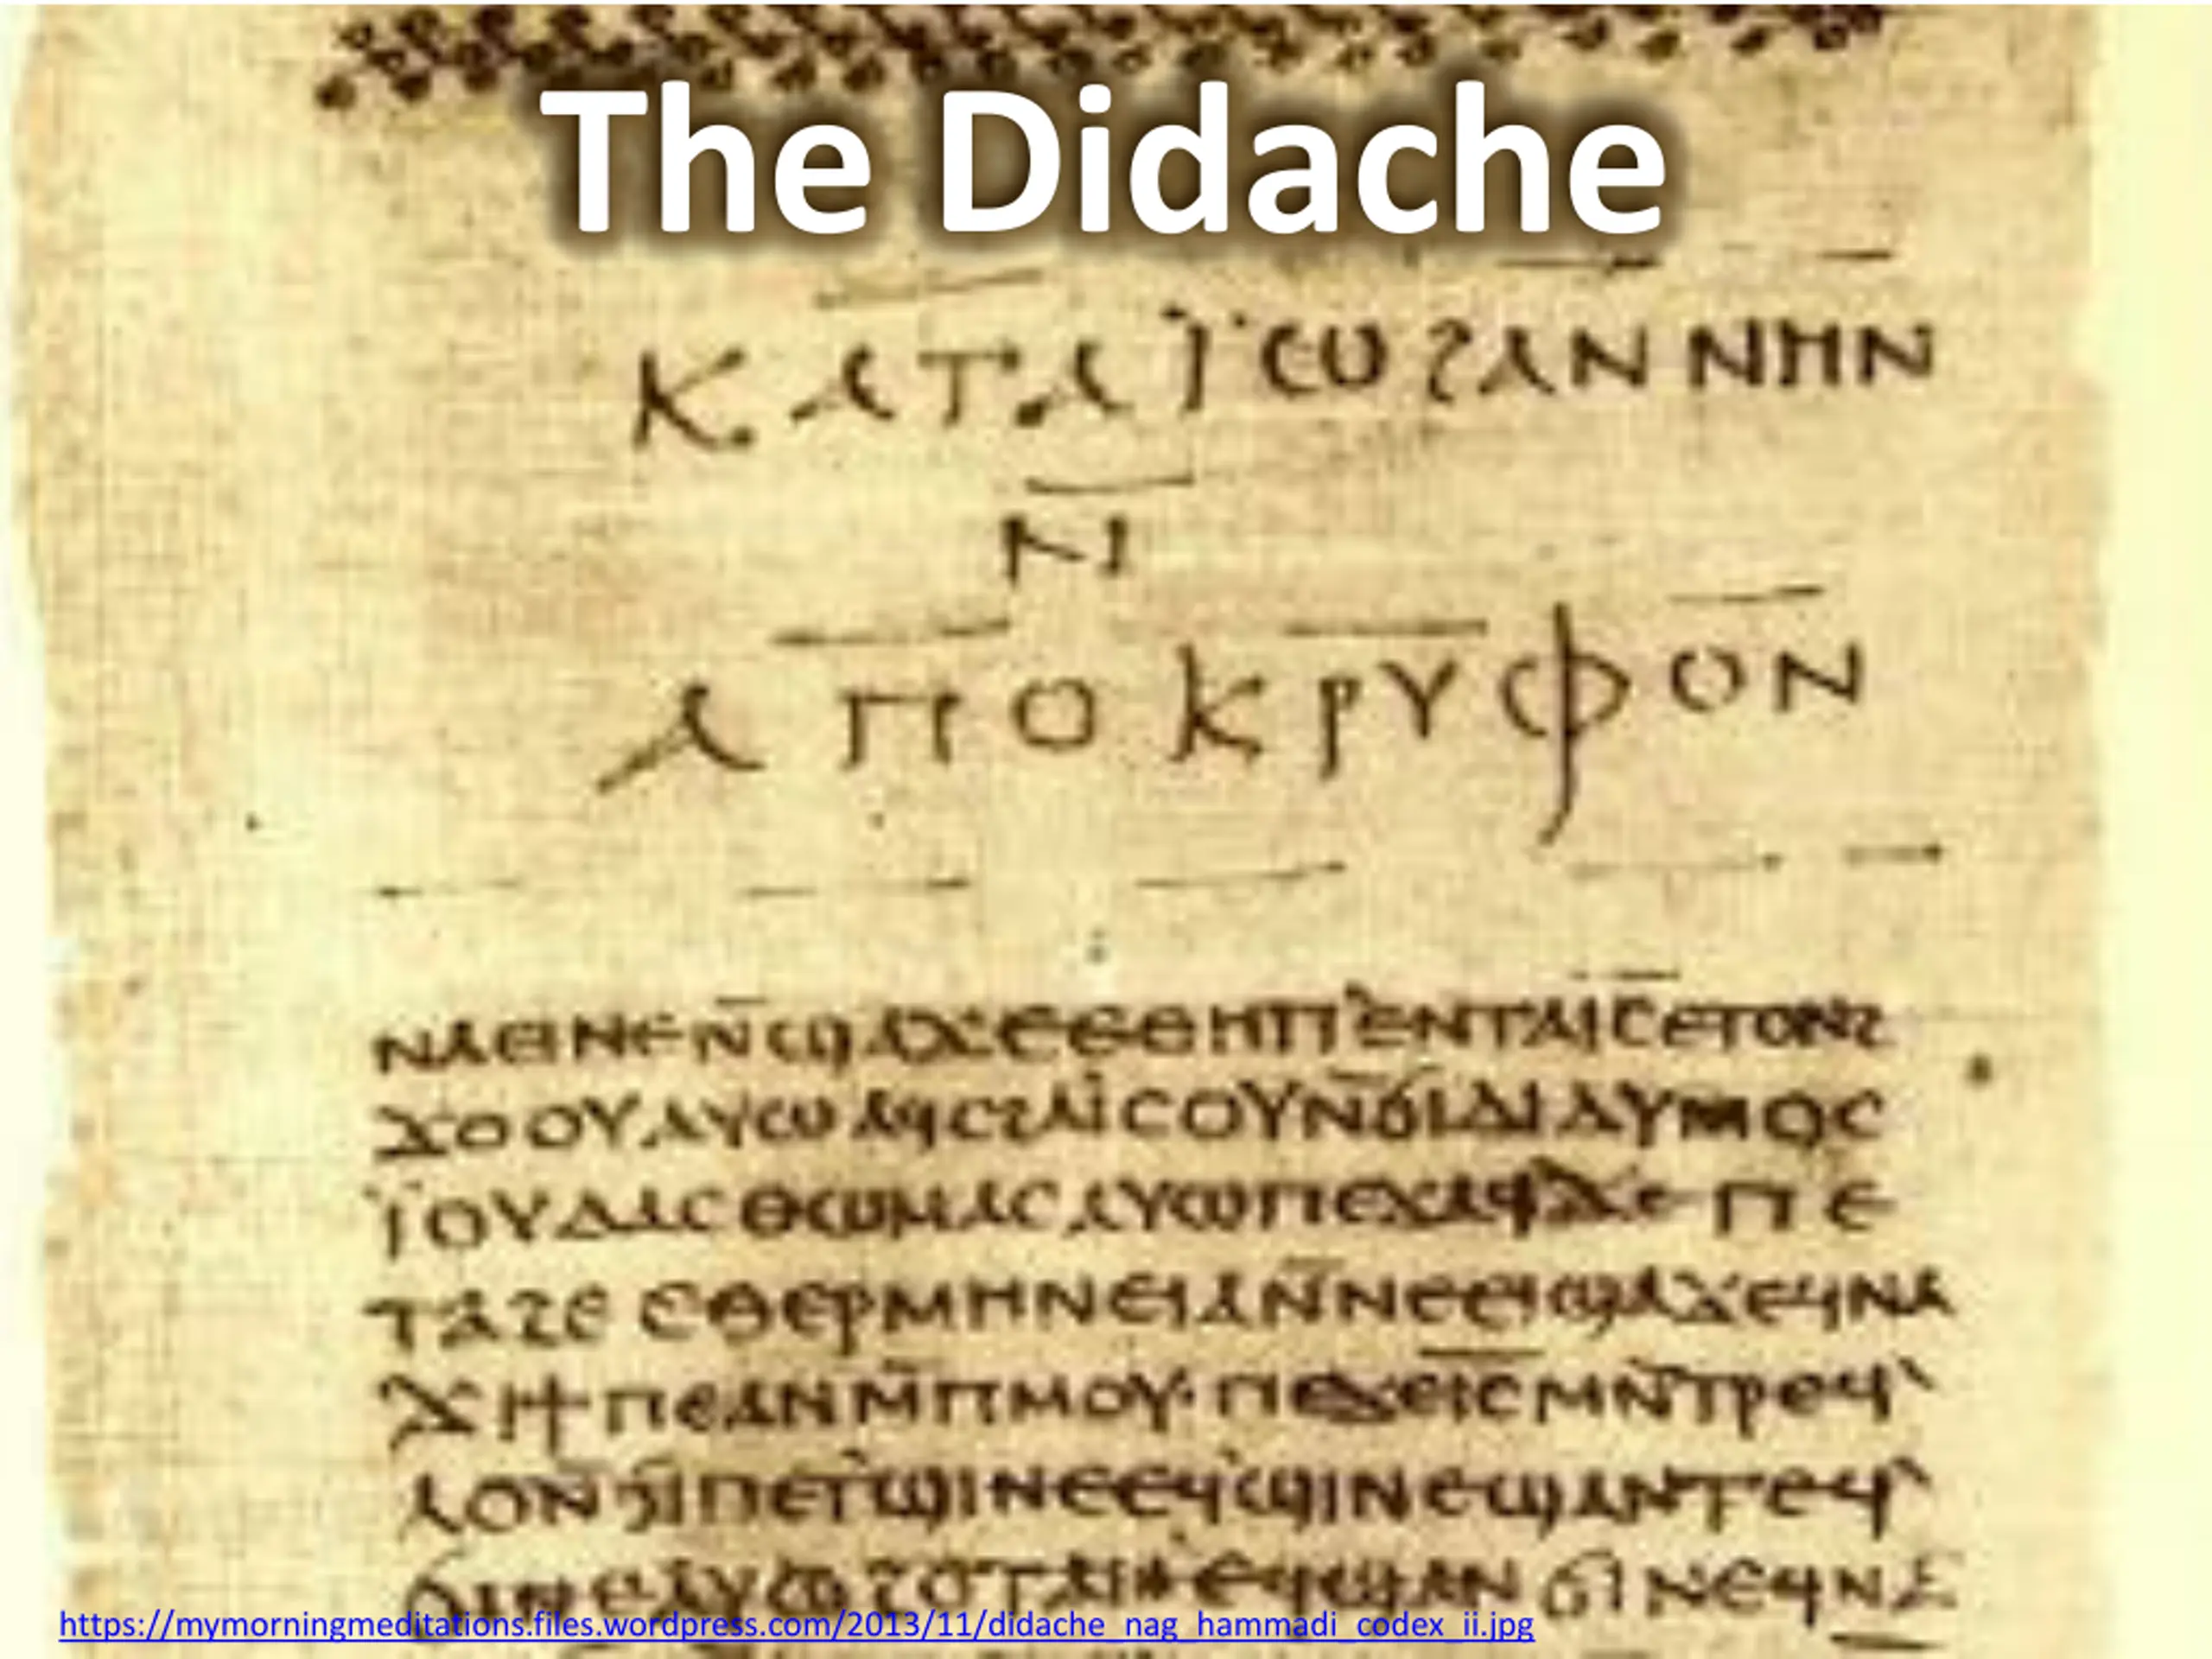 The Didache
ⲕⲁⲧⲁ ⲓ̈ⲱϩⲁⲛⲛⲏⲛ
ⲛ̄
ⲁⲡⲟⲕⲣⲩⲫⲟⲛ
ⲛⲁⲉⲓⲛⲉⲛ̄ϣⲁϫⲉⲉⲑⲏⲡ`ⲉⲛⲧⲁⲓ̅ⲥ̅ⲉⲧⲟⲛϩ
ϫⲟⲟⲩⲁⲩⲱⲁϥⲥϩⲁⲓ̈ⲥⲟⲩⲛ̄ϭⲓⲇⲓⲇⲩⲙⲟⲥ
ⲓ̈ⲟⲩⲇⲁⲥⲑⲱⲙⲁⲥⲁⲩⲱⲡⲉϫⲁϥϫⲉⲡⲉ
ⲧⲁϩⲉⲉⲑⲉⲣⲙⲏⲛⲉⲓⲁⲛ̄ⲛⲉⲉⲓϣⲁϫⲉϥⲛⲁ
ϫⲓϯⲡⲉⲁⲛⲙ̄ⲡⲙⲟⲩ·ⲡⲉϫⲉⲓ̅ⲥ̅ⲙⲛ̄ⲧⲣⲉϥ`
ⲗⲟⲛ̄ϭⲓⲡⲉⲧ`ϣⲓⲛⲉⲉϥϣⲓⲛⲉϣⲁⲛⲧⲉϥ`
ϭⲓⲛⲉⲁⲩⲱϩⲟⲧⲁⲛⲉϥϣⲁⲛϭⲓⲛⲉϥⲛⲁ
https://mymorningmeditations.files.wordpress.com/2013/11/didache_nag_hammadi_codex_ii.jpg